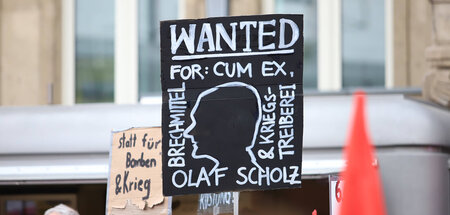 WANTED
FOR: CUM EX,
BRECHMITTEL
& KRIEGS-
TREIBEREI
OLAF SCHOLZ
statt für
Bomben
& Krieg